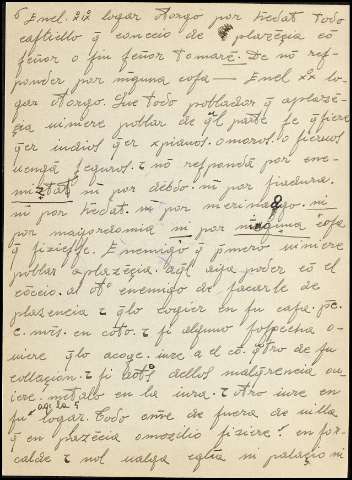 6 Enel. xix logar Atorgo por hedat Todo
castiello q̃ conceio de plazẽçia cõ
señor o sin señor tomarẽ. De nõ res-
ponder por ninguna cosa — Enel xx lo-
gar Atorgo. Que todo poblador q̃ aplazẽ-
çia uiniere poblar de q̃l parte se q̃siere
q̃er iudios q̃er xpianos. o moros. o sieruos
uengã seguros. τ nõ respondã por ene-
miztat ni por debdo. ni por fiadura.
ni por hedat. ni por merinadgo. ni
por maiordomia ni por ninguna cosa
q̃ fiziesse. E enemigo q̃ p̃mero uiniere
poblar aplazẽçia. aq̃l aya poder cõ el
cõceio. al otº enemigo de sacarle de
plasencia τ q̃lo cogier en su casa. pc.
c. mrs. en coto. τ si alguno sospecha o-
uiere q̃lo acoge. iure a el cõ. q̃tro de su
collaçion. τ si dotºˢ dellos malq̃rencia ou-
iere. metalo en la iura. τ otro iure en
aq̃sta ?
su logar. Todo om̃e de fuera de uilla
q̃ en plazẽcia omezilio fiziere. en for-
calde τ nol ualga egl̃ia ni palaçio ni